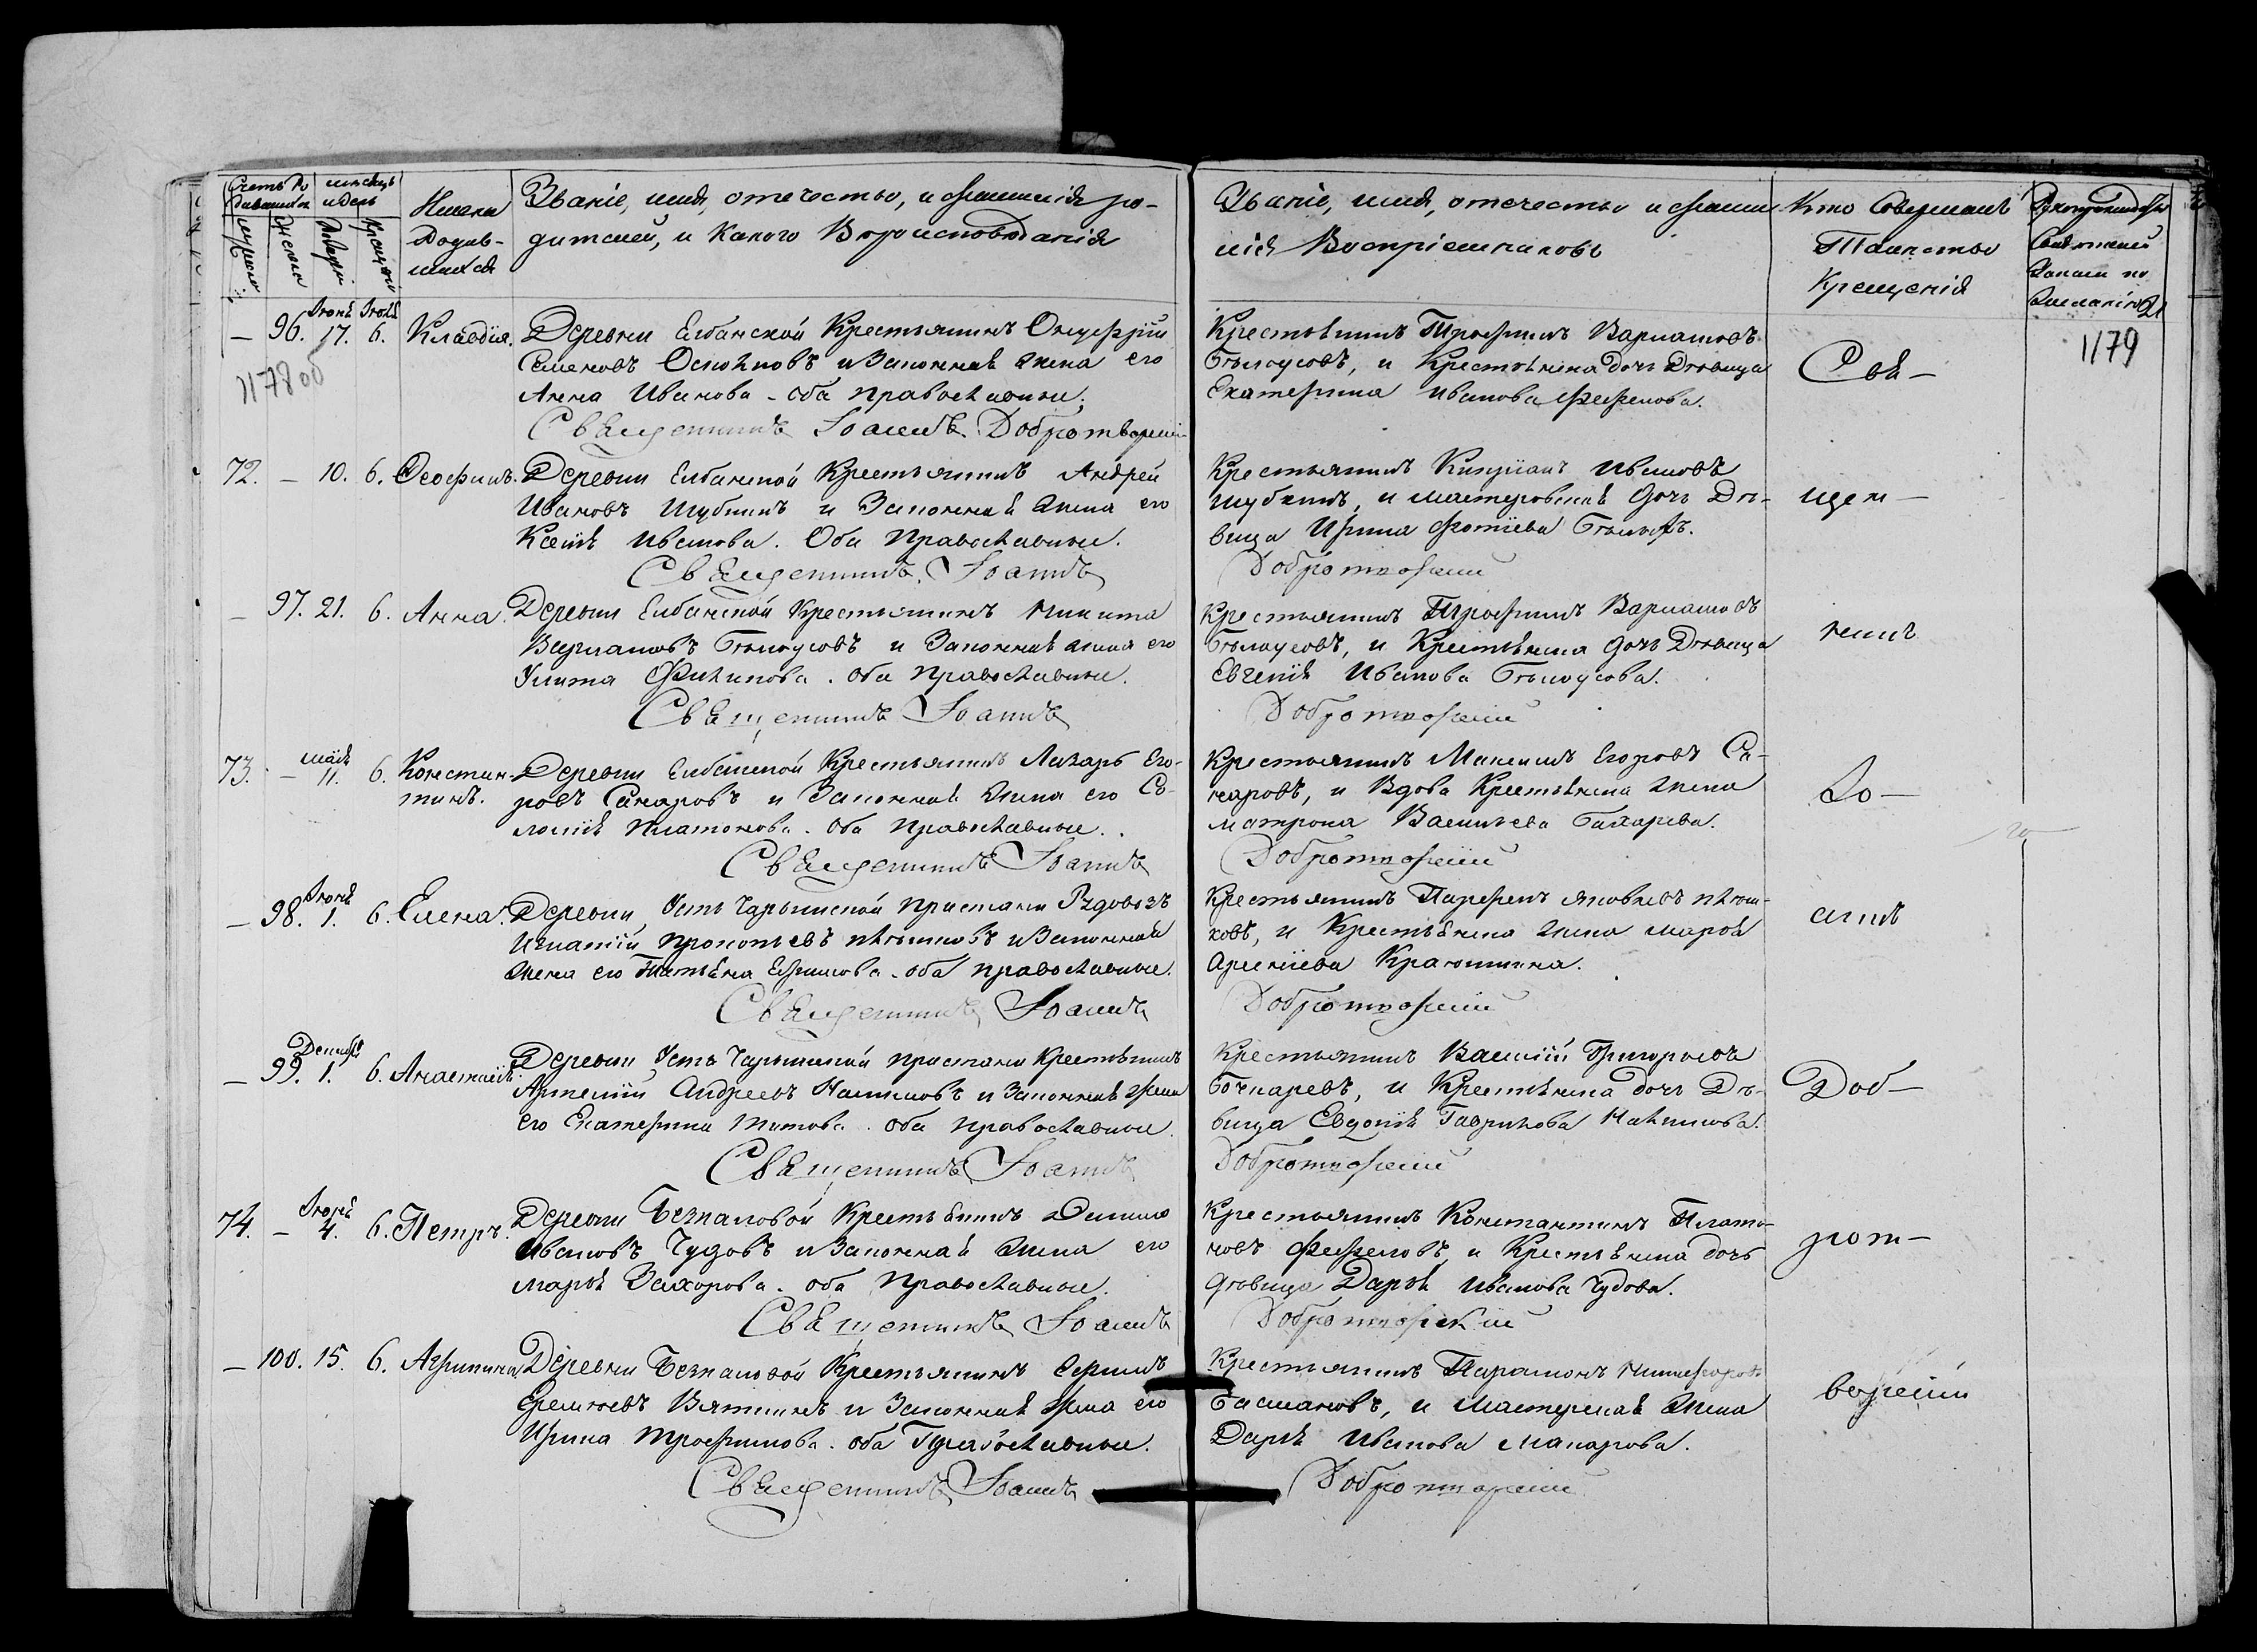 Счетъ Ро
дившихся
мѣсяцъ
и день
мужеска
женска
рожденія
крещенія
Имена
Родив-
шихся
Званіе, имя, отечество, и фамилія ро-
дителей, и Какого Вѣроисповѣданія
Званіе, имя, отечество и фами
лія Воспріемниковъ
Кто Совершалъ
Таинство
Крещенія
Рукоприкладство
Свидѣтелей
Записи по
желанію
21
1179
117800
— 96. Іюня 17. Іюля 6. Клавдія. Деревни Елбанской Крестьянинъ Онуфрій
Семеновъ Осиповъ и Законная жена его
Анна Иванова - оба православные.
Священникъ Іоаннъ Добротворскій
Крестьянинъ Трофимъ Варламовъ
Бѣлоусовъ, и Крестьянина дочь Дѣвица
Екатерина Иванова Фефелова.
Свя-
72. — 10. 6. Ѳеофилъ. Деревни Елбанской Крестьянинъ Андрей
Ивановъ Шубинъ и Законная жена его
Ксенія Иванова. Оба Православные.
Священникъ Іоаннъ
Крестьянинъ Кипріанъ Ивановъ
Шубинъ, и мастеровская дочь Дѣ-
вица Ирина Фотіева
Добротворскій
щен-
— 97. 21. 6. Анна. Деревни Елбанской Крестьянинъ Никита
Варламовъ Бѣлоусовъ и Законная жена его
Улита Филипова. Оба Православные.
Священникъ Іоаннъ
Крестьянинъ Трофимъ Варламовъ
Бѣлоусовъ, и Крестьянина дочь Дѣвица
Евгенія Иванова Бѣлоусова.
Добротворскій
никъ
73. — мая 11. 6. Констан- Деревни Елбанской Крестьянинъ Лазарь Его-
тинъ. ровъ Санаровъ и Законная жена его Со-
ломія Платонова. Оба Православные.
Священникъ Іоаннъ
Крестьянинъ Максимъ Егоровъ Са-
наровъ, и Вдова Крестьянина жена
Матрона Васильева Бахарева.
Добротворскій
Іо-
— 98. Іюня 1. 6. Елена. Деревни Усть Чарышской Пристани
Игнатій Прокопьевъ и Законная
жена его Татьяна Ефимова. оба православные.
Священникъ Іоаннъ
Крестьянинъ Парфенъ Яковлевъ
ковъ, и Крестьянина жена Марѳа
Арсеніева Краюшкина.
Добротворскій
аннъ
— 99. 1. 6. Анастасія. Деревни Усть Чарышской Пристани Крестьянинъ
Артемій Андреевъ и Законная жена
его Екатерина Титова. оба православные.
Священникъ Іоаннъ
Крестьянинъ Василій Григорьевъ
Бочкаревъ, и Крестьянина дочь Дѣ-
вица Евдокія Гаврилова
Добротворскій
Доб-
74. — 4. 6. Петръ. Деревни Безпаловой Крестьянинъ
Ивановъ Чудовъ и Законная жена его
Марѳа Захарова. оба Православные.
Священникъ Іоаннъ
Крестьянинъ Константинъ Плато-
новъ Фефеловъ, и Крестьянина дочь
дѣвица Дарья Иванова Чудова.
Добротворскій
рот-
— 100. 15. 6. Агрипина Деревни Безпаловой Крестьянинъ
Еремѣевъ Вяткинъ и Законная жена его
Ирина Трофимова. оба Православные.
Священникъ Іоаннъ
Крестьянинъ Парамонъ Никифоровъ
Басмановъ, и мастерская жена
Дарья Иванова Макарова.
Добротворскій
ворскій